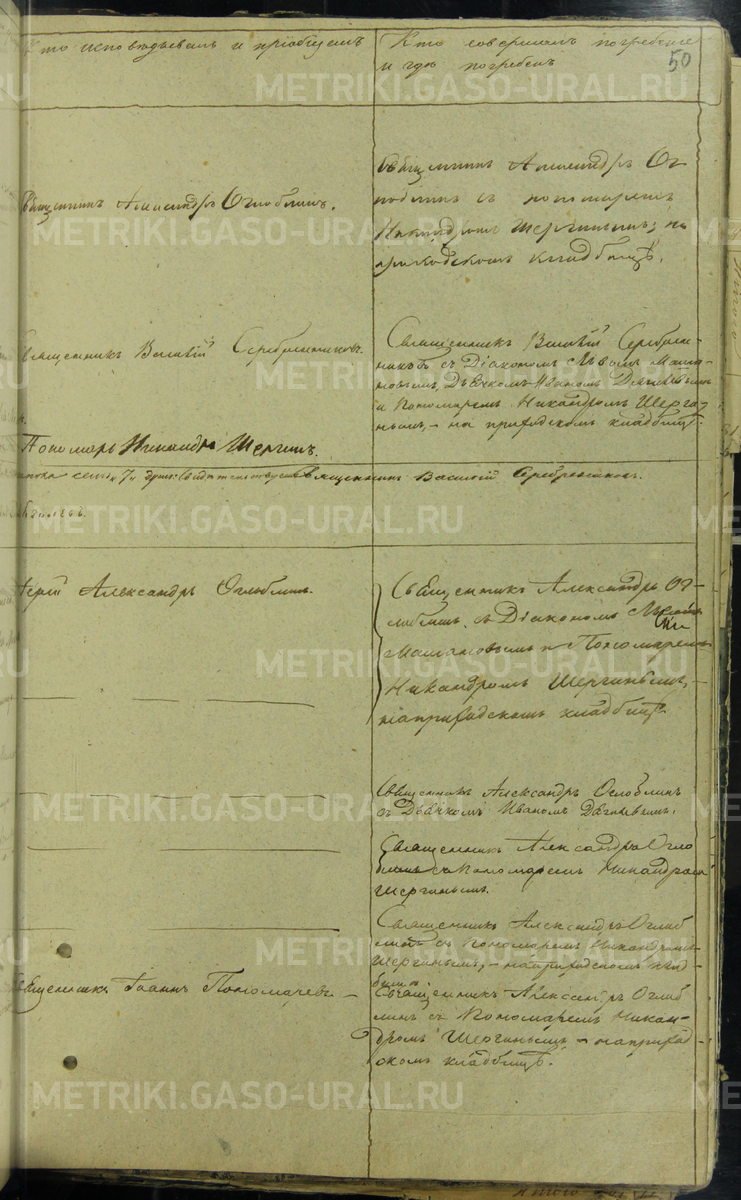 Кто исповѣдывалъ и пріобщалъ
Кто совершалъ погребеніе
и гдѣ погребенъ
50
Священникъ Александръ Оглоблинъ.
Священникъ Александръ Ог
лоблинъ съ пономаремъ
Никандромъ Шергинымъ; на
приходскомъ кладбищѣ.
Священникъ Василій Серебренниковъ.
Священникъ Василій Серебрен-
никовъ съ Діакономъ
Дьячкомъ Иваномъ
и Пономаремъ Никандромъ Шерги-
нымъ, - на приходскомъ кладбищѣ.
Пономарь Никандръ Шергинъ.
Священникъ Василій Серебренниковъ.
Іерей Александръ Оглоблинъ.
Священникъ Александръ Ог-
лоблинъ съ Діакономъ
и Пономаремъ
Никандромъ Шергинымъ,
на приходскомъ кладбищѣ.
Священникъ Александръ Оглоблинъ
съ Дьячкомъ Иваномъ
Священникъ Александръ Огло
блинъ съ Пономаремъ Никандромъ
Шергинымъ.
Священникъ Александръ Оглоб
линъ съ Пономаремъ Никандромъ
Шергинымъ, - на приходскомъ клад-
бищѣ.
Священникъ Іоаннъ Пономаревъ.
Священникъ Александръ Оглоб
линъ съ Пономаремъ Никан-
дромъ Шергинымъ - на приход
скомъ кладбищѣ.
METRIKI.GASO-URAL.RU